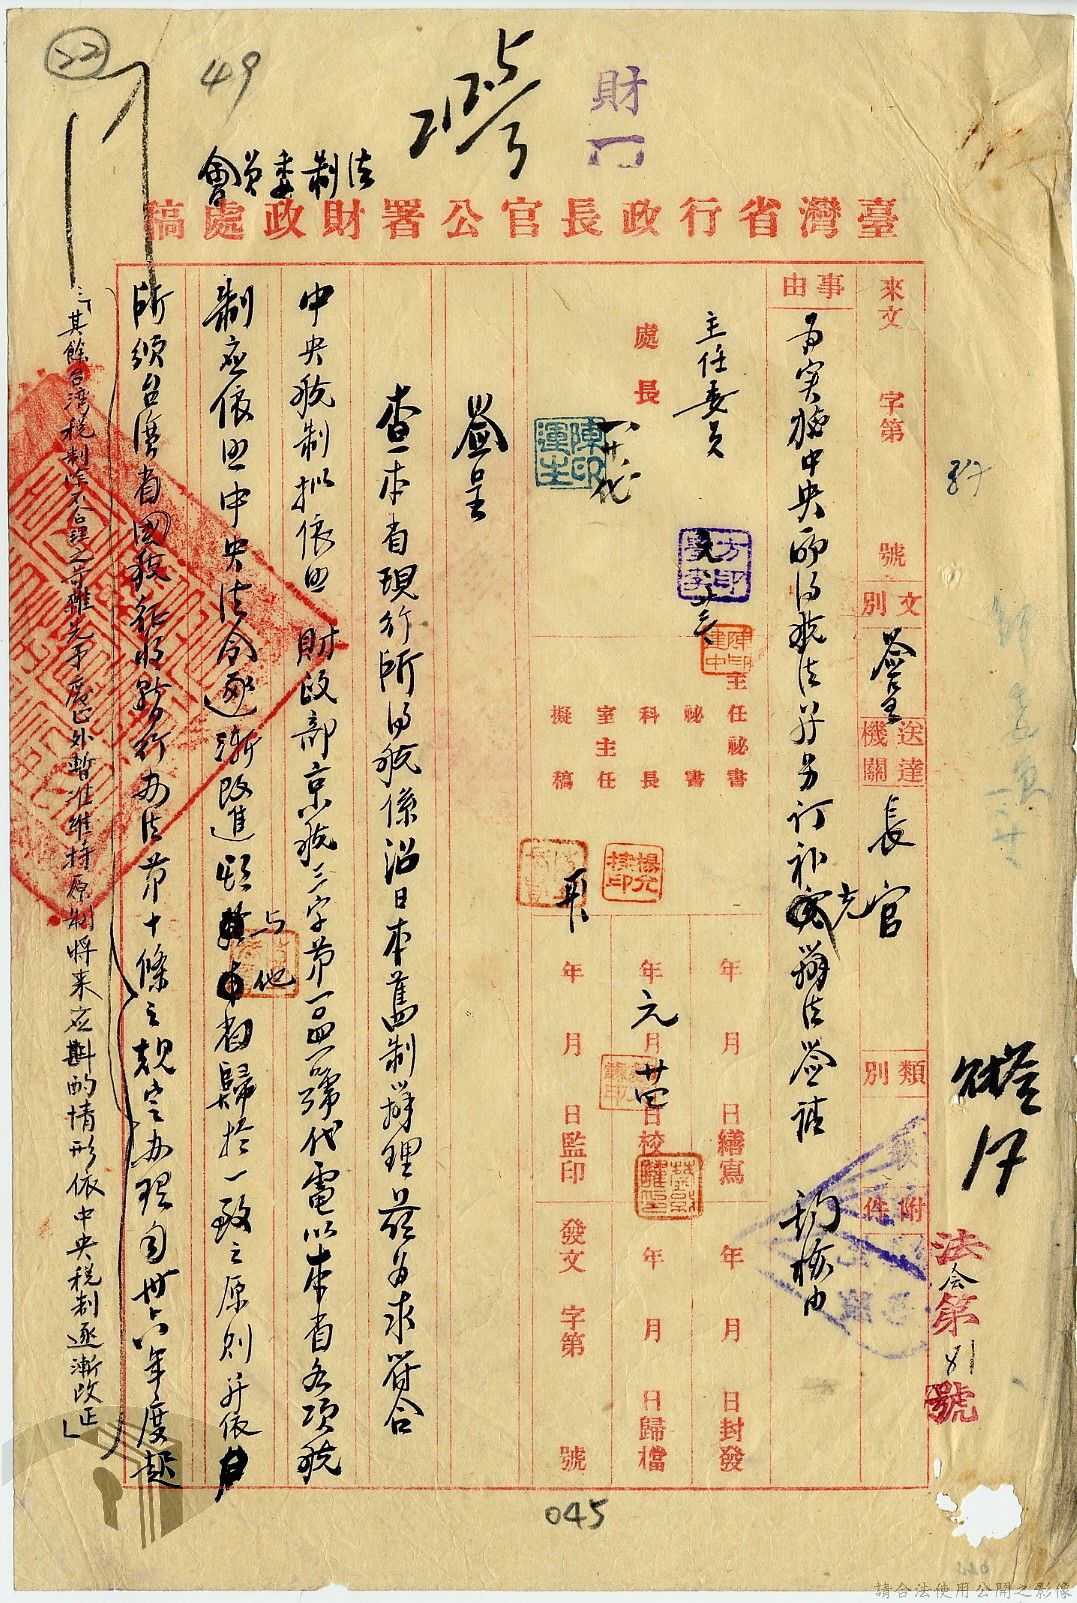 22
49
財
法制委員會
臺灣省行政長官公署財政處稿
來文 字第 號
文別 簽呈
送達機關 長官
類別
附件
事由
為实施中央所得稅法并另訂補充辦法簽請 鈞核由
主任委員
處長
主任秘書
秘書
科長
室主任
擬稿
年 月 日繕寫 年 月 日封發
年元月廿四日校 年 月 日歸檔
年 月 日監印 發文 字第 號
簽呈
查本省現行所得稅係沿日本舊制辦理茲為求符合
中央稅制拟依照 財政部京稅三字第 號代電以本省各項稅
制应依照中央法令逐漸改進 与他省歸於一致之原則并依
所頒台灣省國稅征收暫行办法第十條之規定办理自卅六年度起
「其餘台湾税制除不合理之 先予廢止外暫准維持原制將来应斟酌情形依中央税制逐漸改正」
法会第 號
045
請合法使用公開之影像